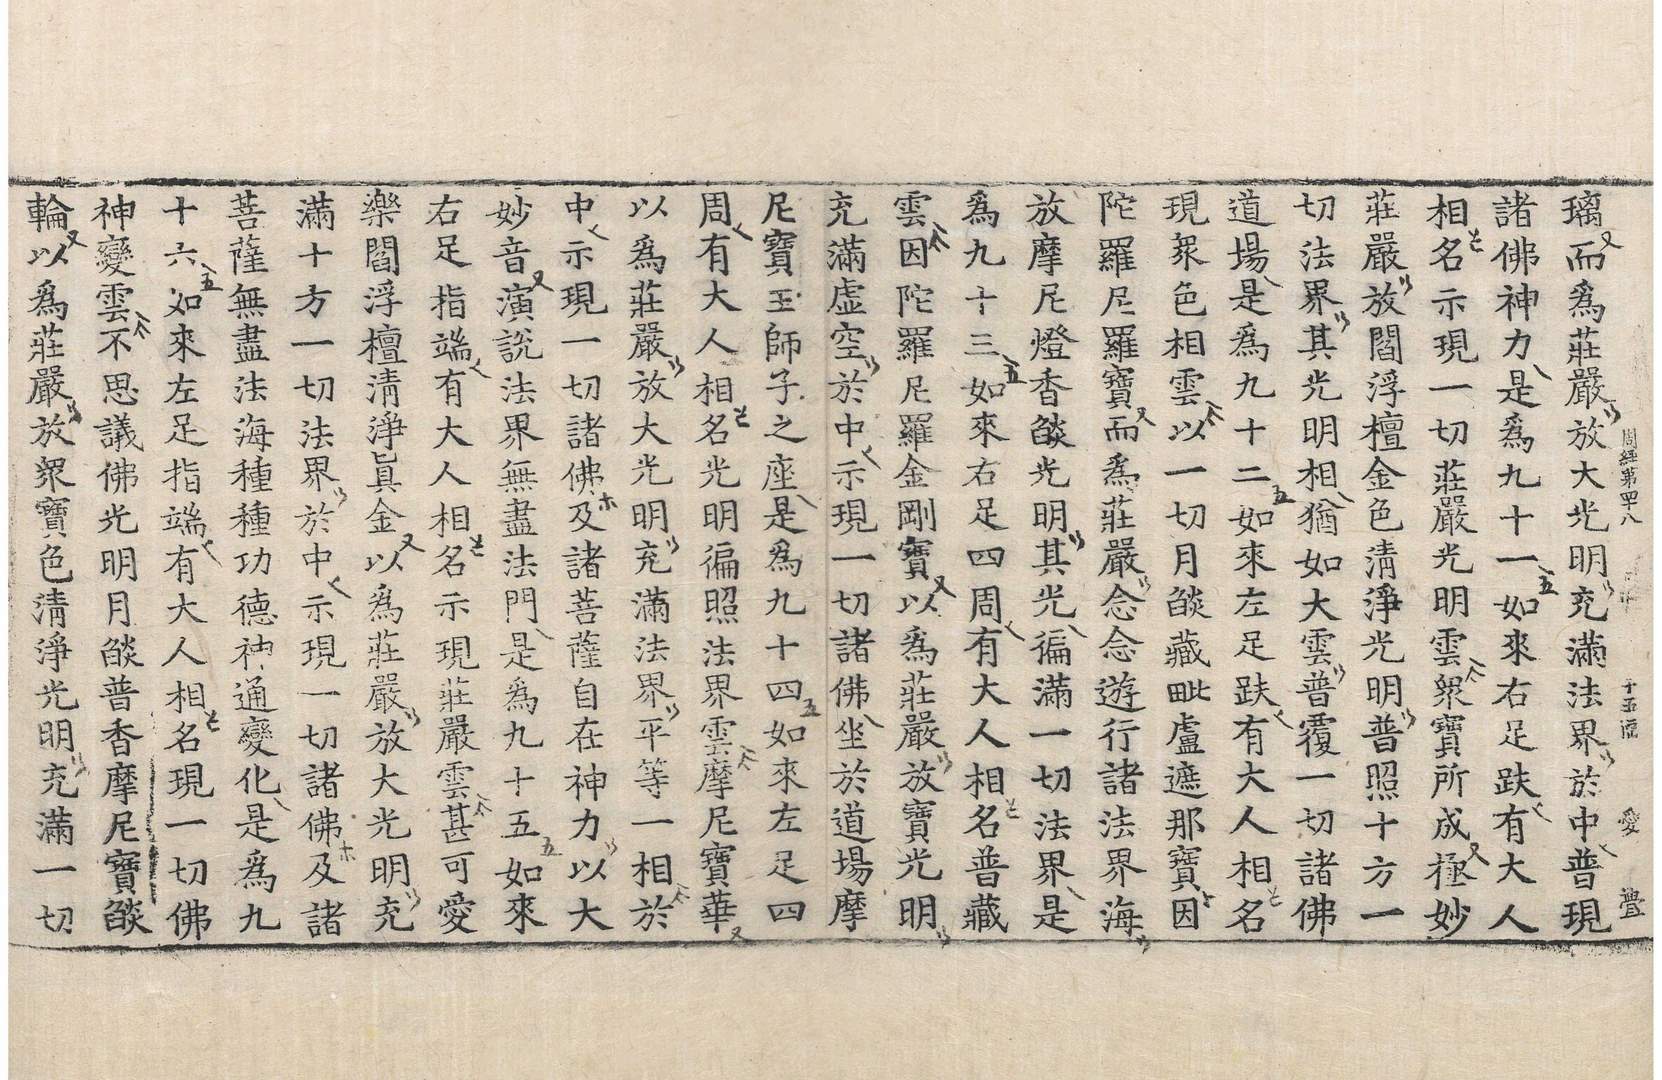 璃而爲莊嚴放大光明充滿法界於中普現
諸佛神力是爲九十一如來右足趺有大人
相名示現一切莊嚴光明雲衆寶所成極妙
莊嚴放閻浮檀金色淸淨光明普照十方一
切法界其光明相猶如大雲普覆一切諸佛
道場是爲九十二如來左足趺有大人相名
現衆色相雲以一切月𦦨藏毗盧遮那寶因
陀羅尼羅寶而爲莊嚴念念遊行諸法界海
放摩尼燈香𦦨光明其光徧滿一切法界是
爲九十三如來右足四周有大人相名普藏
雲因陀羅尼羅金剛寶以爲莊嚴放寶光明
充滿虛空於中示現一切諸佛坐於道場摩
尼寶王師子之座是爲九十四如來左足四
周有大人相名光明徧照法界雲摩尼寶華
以爲莊嚴放大光明充滿法界平等一相於
中示現一切諸佛及諸菩薩自在神力以大
妙音演說法界無盡法門是爲九十五如來
右足指端有大人相名示現莊嚴雲甚可愛
樂閻浮檀淸淨眞金以爲莊嚴放大光明充
滿十方一切法界於中示現一切諸佛及諸
菩薩無盡法海種種功德神通變化是爲九
十六如來左足指端有大人相名現一切佛
神變雲不思議佛光明月𦦨普香摩尼寶𦦨
輪以爲莊嚴放衆寶色淸淨光明充滿一切